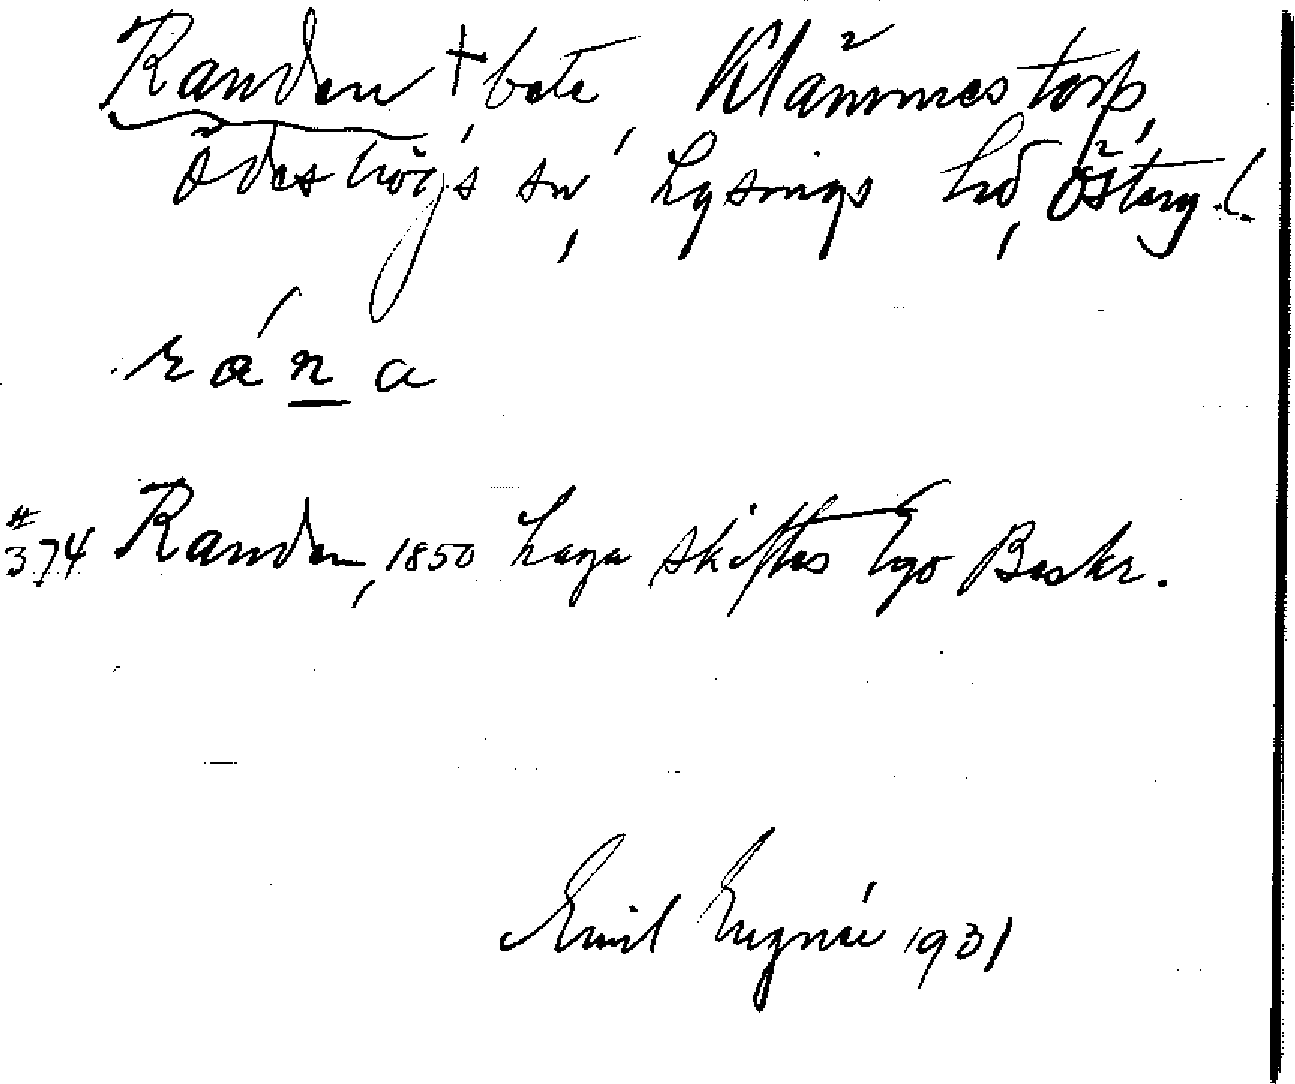 Randen + bete, Klämmestorp,
Ödeshögs sn, Lysings hd, Österg.l.
rána
# 374 Randen, 1850 Laga skiftes Ego Beskr.
Emil 1931